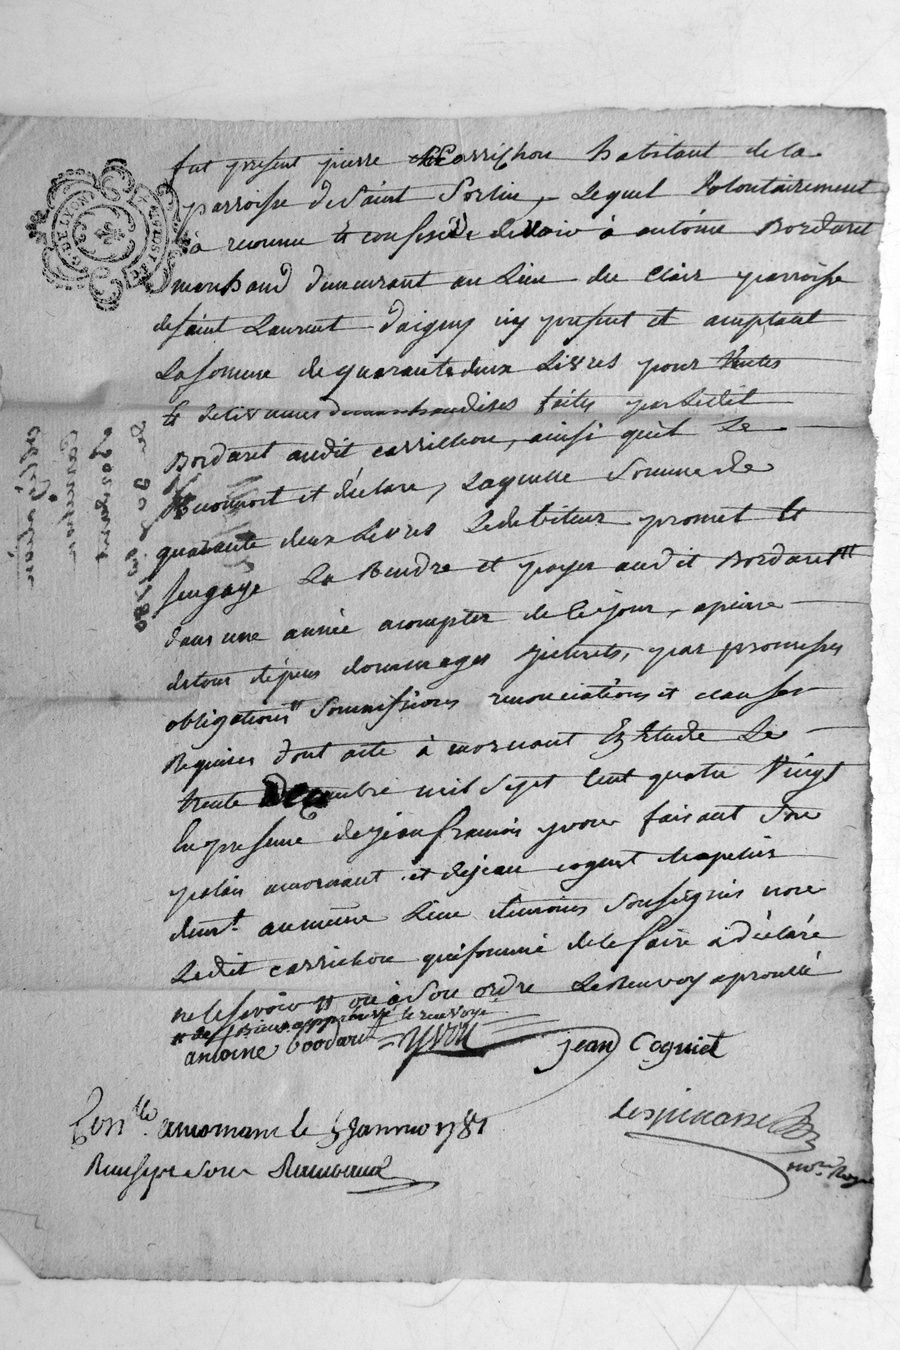 fut present pierre Carrichou habitant de la
parroisse de Saint Sorlin, Lequel Volontairement
à reconnu et confessé devoir à antoine Bordaret
marchand demeurant au Lieu du Clair parroisse
de saint Laurent d'aigny icy present et acceptant
La somme de quarante deux Livres pour Ventes
et delivrances de marchandises faites par Ledit
Bordaret audit carrichou, ainsi qu'il Le
Reconnoit et déclare, Laquelle Somme de
quarante deux Livres Ledebiteur promet et
sengage La Rendre et payer audit Bordaret
dans une année a compter de Ce jour, apeine
de tous dépens dommages interets, par promesses
obligations Soumissions renonciations et clauses
Requises dont acte à mornant En Etude Le
trente Decembre mil Sept Cent quatre Vingt
En presence de jean francois yvon faisant Son
palais amornant et dejean coguet
demt. au même Lieu témoins Soussignés non
Ledit carrichou qui sommé de le faire a déclaré
ne le savoir Le Renvoy aprouvé
approuvé le renvoye
antoine boodaret yvon jean Coguet
Conlle. amornant le 5 Janvier 1781
Reu sept sous
Lespinasse
nore. Royal
DE LYON
Du 30 Xbre 1780